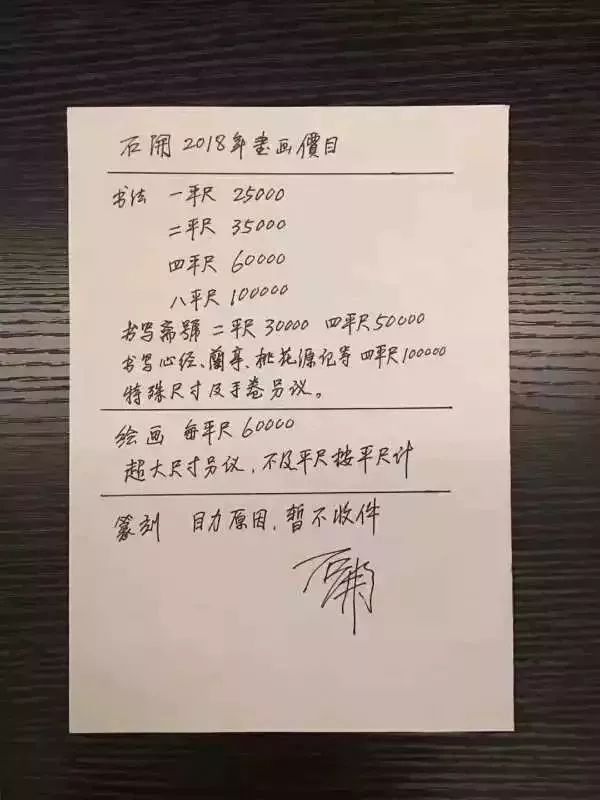 石開2018年書画價目
书法 一平尺 25000
二平尺 35000
四平尺 60000
八平尺 100000
书写斋號 二平尺30000 四平尺50000
书写心经、蘭亭、桃花源记等 四平尺100000
特殊尺寸及手卷另议。
绘画 每平尺60000
超大尺寸另议，不及平尺按平尺计
篆刻 目力原因，暂不收件
石開